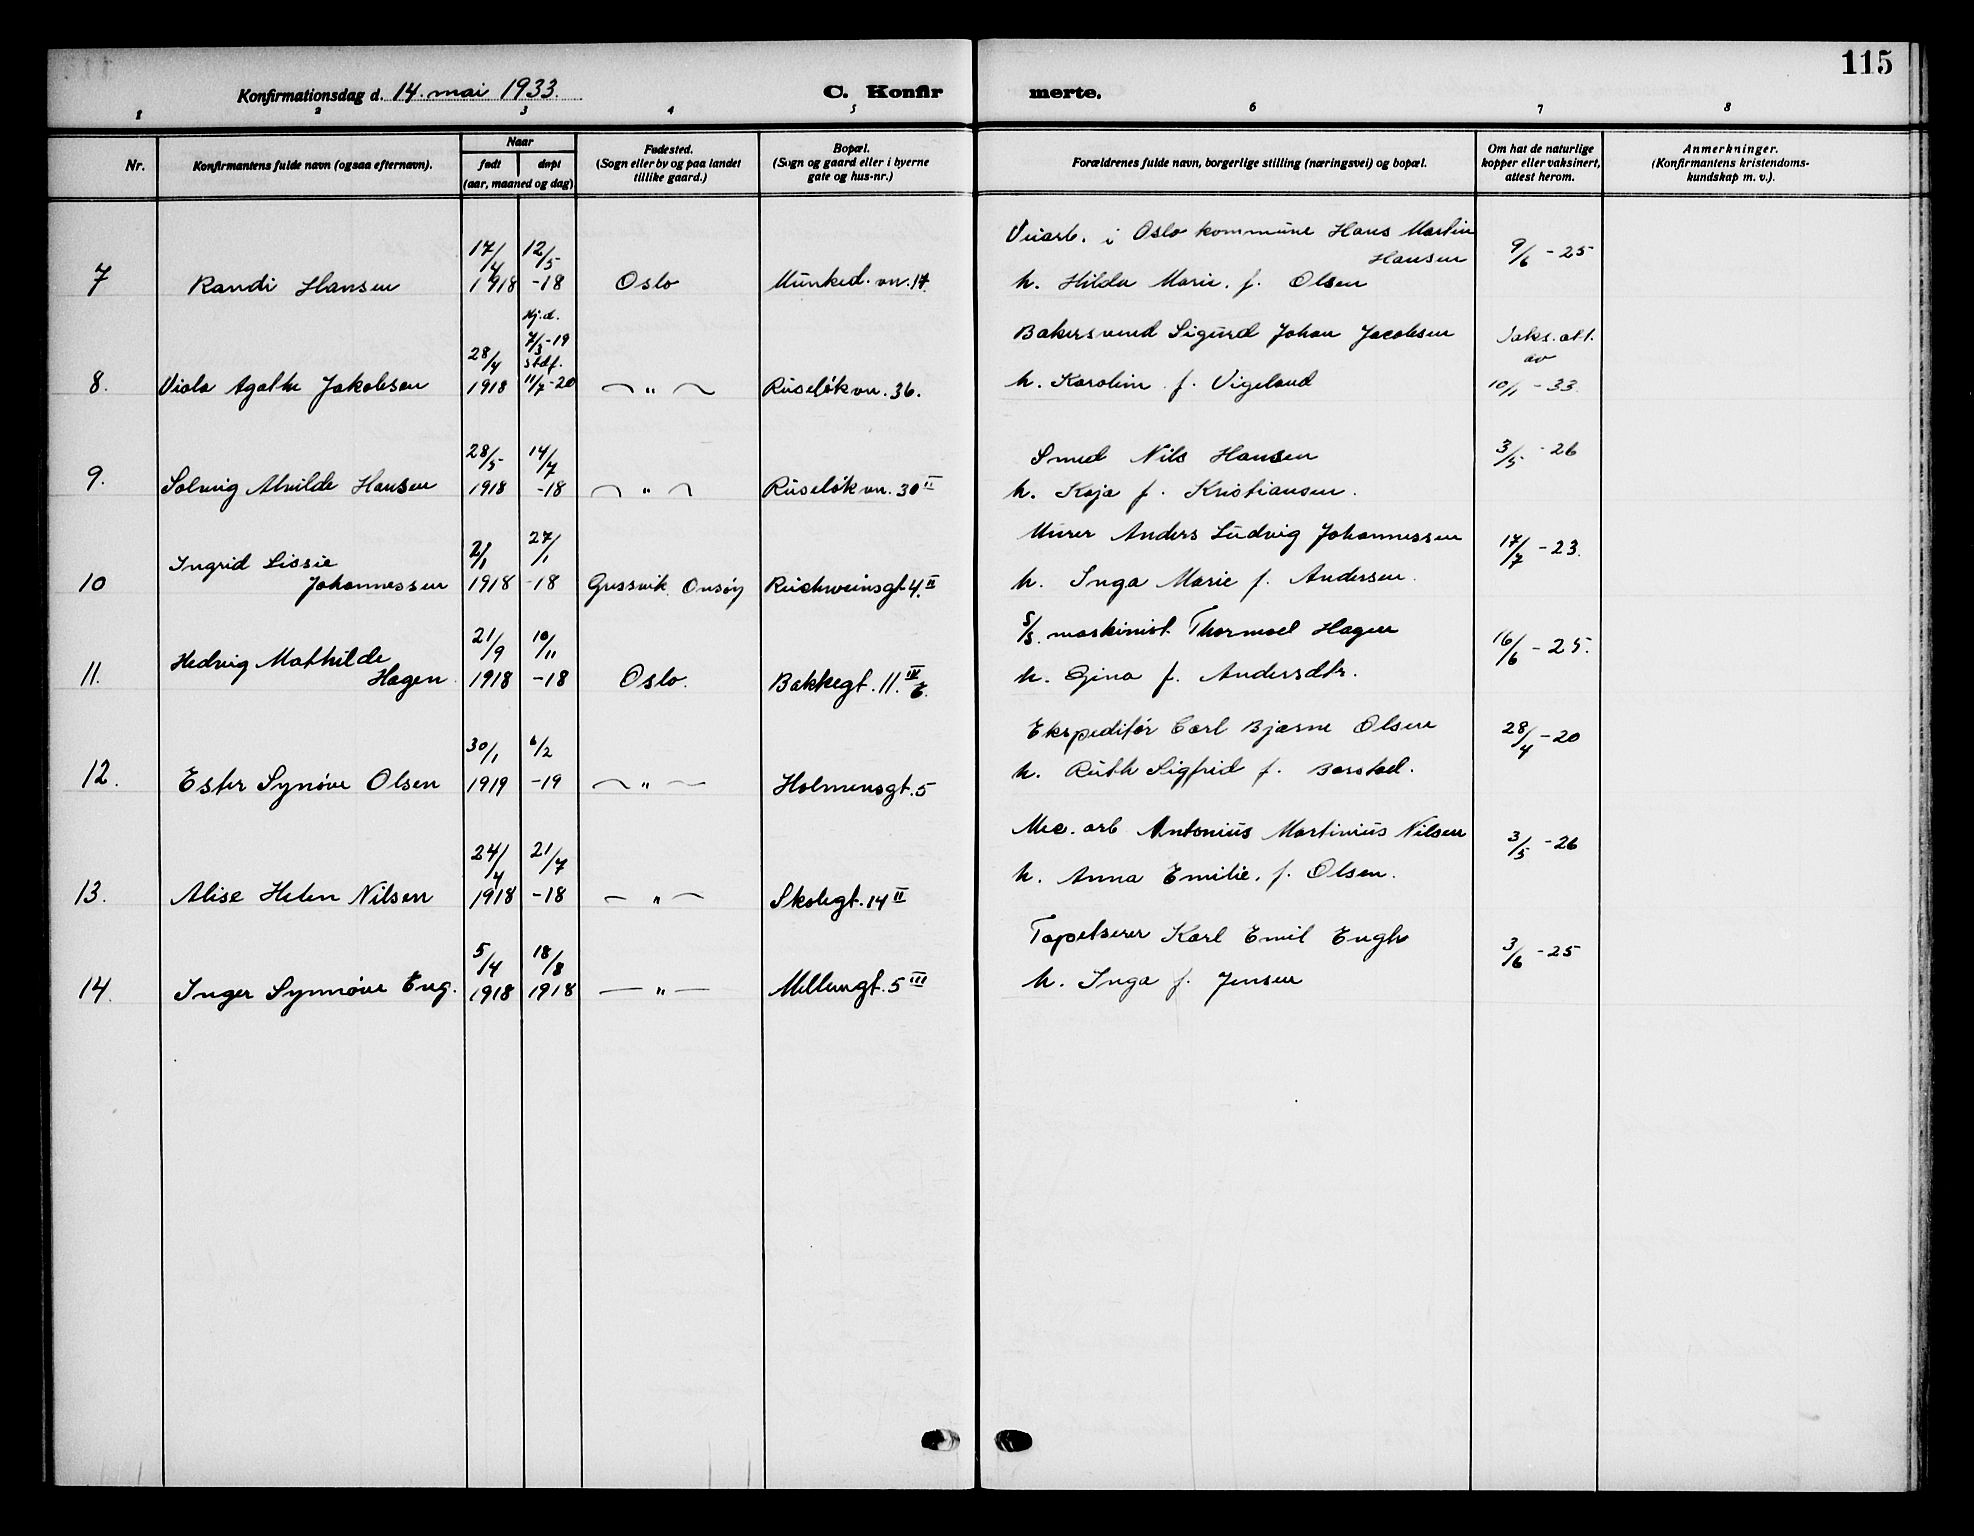 115
Konfirmationsdag d. 14. mai 1933.
C. Konfir merte.
1 2 3 4 5 6 7 8
Nr.
Konfirmantens fulde navn (ogsaa efternavn).
Naar
født døpt
(aar, maaned og dag)
Fødested.
(Sogn eller by og paa landet
tillike gaard.)
Bopæl.
(Sogn og gaard eller i byerne
gate og hus-nr.)
Forældrenes fulde navn, borgerlige stilling (næringsvei) og bopæl.
Om hat de naturlige
kopper eller vaksinert,
attest herom.
Anmerkninger.
(Konfirmantens kristendoms-
kundskap m. v.).
17/4 12/5 Veiarb. i Oslo kommune Hans Martin
Hansen 9/6 - 25
7 Randi Hansen 1918 -18 Oslo Munked. vn. 17. h. Hilda Marie. f. Olsen
Hj.d.
28/4 7/3-19 Bakersvend Sigurd Johan Jacobsen Vaks. att.
stdf. av
8. Viola Agathe Jakobsen 1918 11/7-20 — " — Ruseløkvn. 36. h. Karoline f. Vigeland 10/1 - 33.
28/5 14/7 Smed Nils Hansen 3/5 - 26
9. Solveig Alvilde Hansen 1918 -18 — " — Ruseløkvn. 30 II h. Kaja f. Kristiansen.
2/1 27/1 Murer Anders Ludvig Johannessen 17/7 - 23.
Ingrid Lissie
10 Johannessen 1918 -18 Gressvik. Onsøy Reichweinsgt. 4. II h. Inga Marie f. Andersen.
21/9 10/11 S/S. maskinist Thormod Hagen 16/6 - 25.
Hedvig Mathilde
11. Hagen. 1918 -18 Oslo. Bakkegt. 11. IV h. Gina f. Andersdtr.
30/1 6/2 Ekspeditør Carl Bjarne Olsen 28/4 - 20
12. Ester Synøve Olsen 1919 -19 — " — Holmensgt. 5 h. Ruth Sigfrid f. Borstad.
24/4 21/7 Mec. arb Antonius Martinius Nilsen 3/5 - 26
13. Alise Helen Nilsen 1918 -18 — " — Skolegt. 14 II h. Anna Emilie. f. Olsen.
5/4 18/8 Tapetserer Karl Emil Engh 3/6 - 25
14. Inger Synnøve Eng. 1918 1918 — " — Mellemgt. 5 III h. Inga f. Jensen